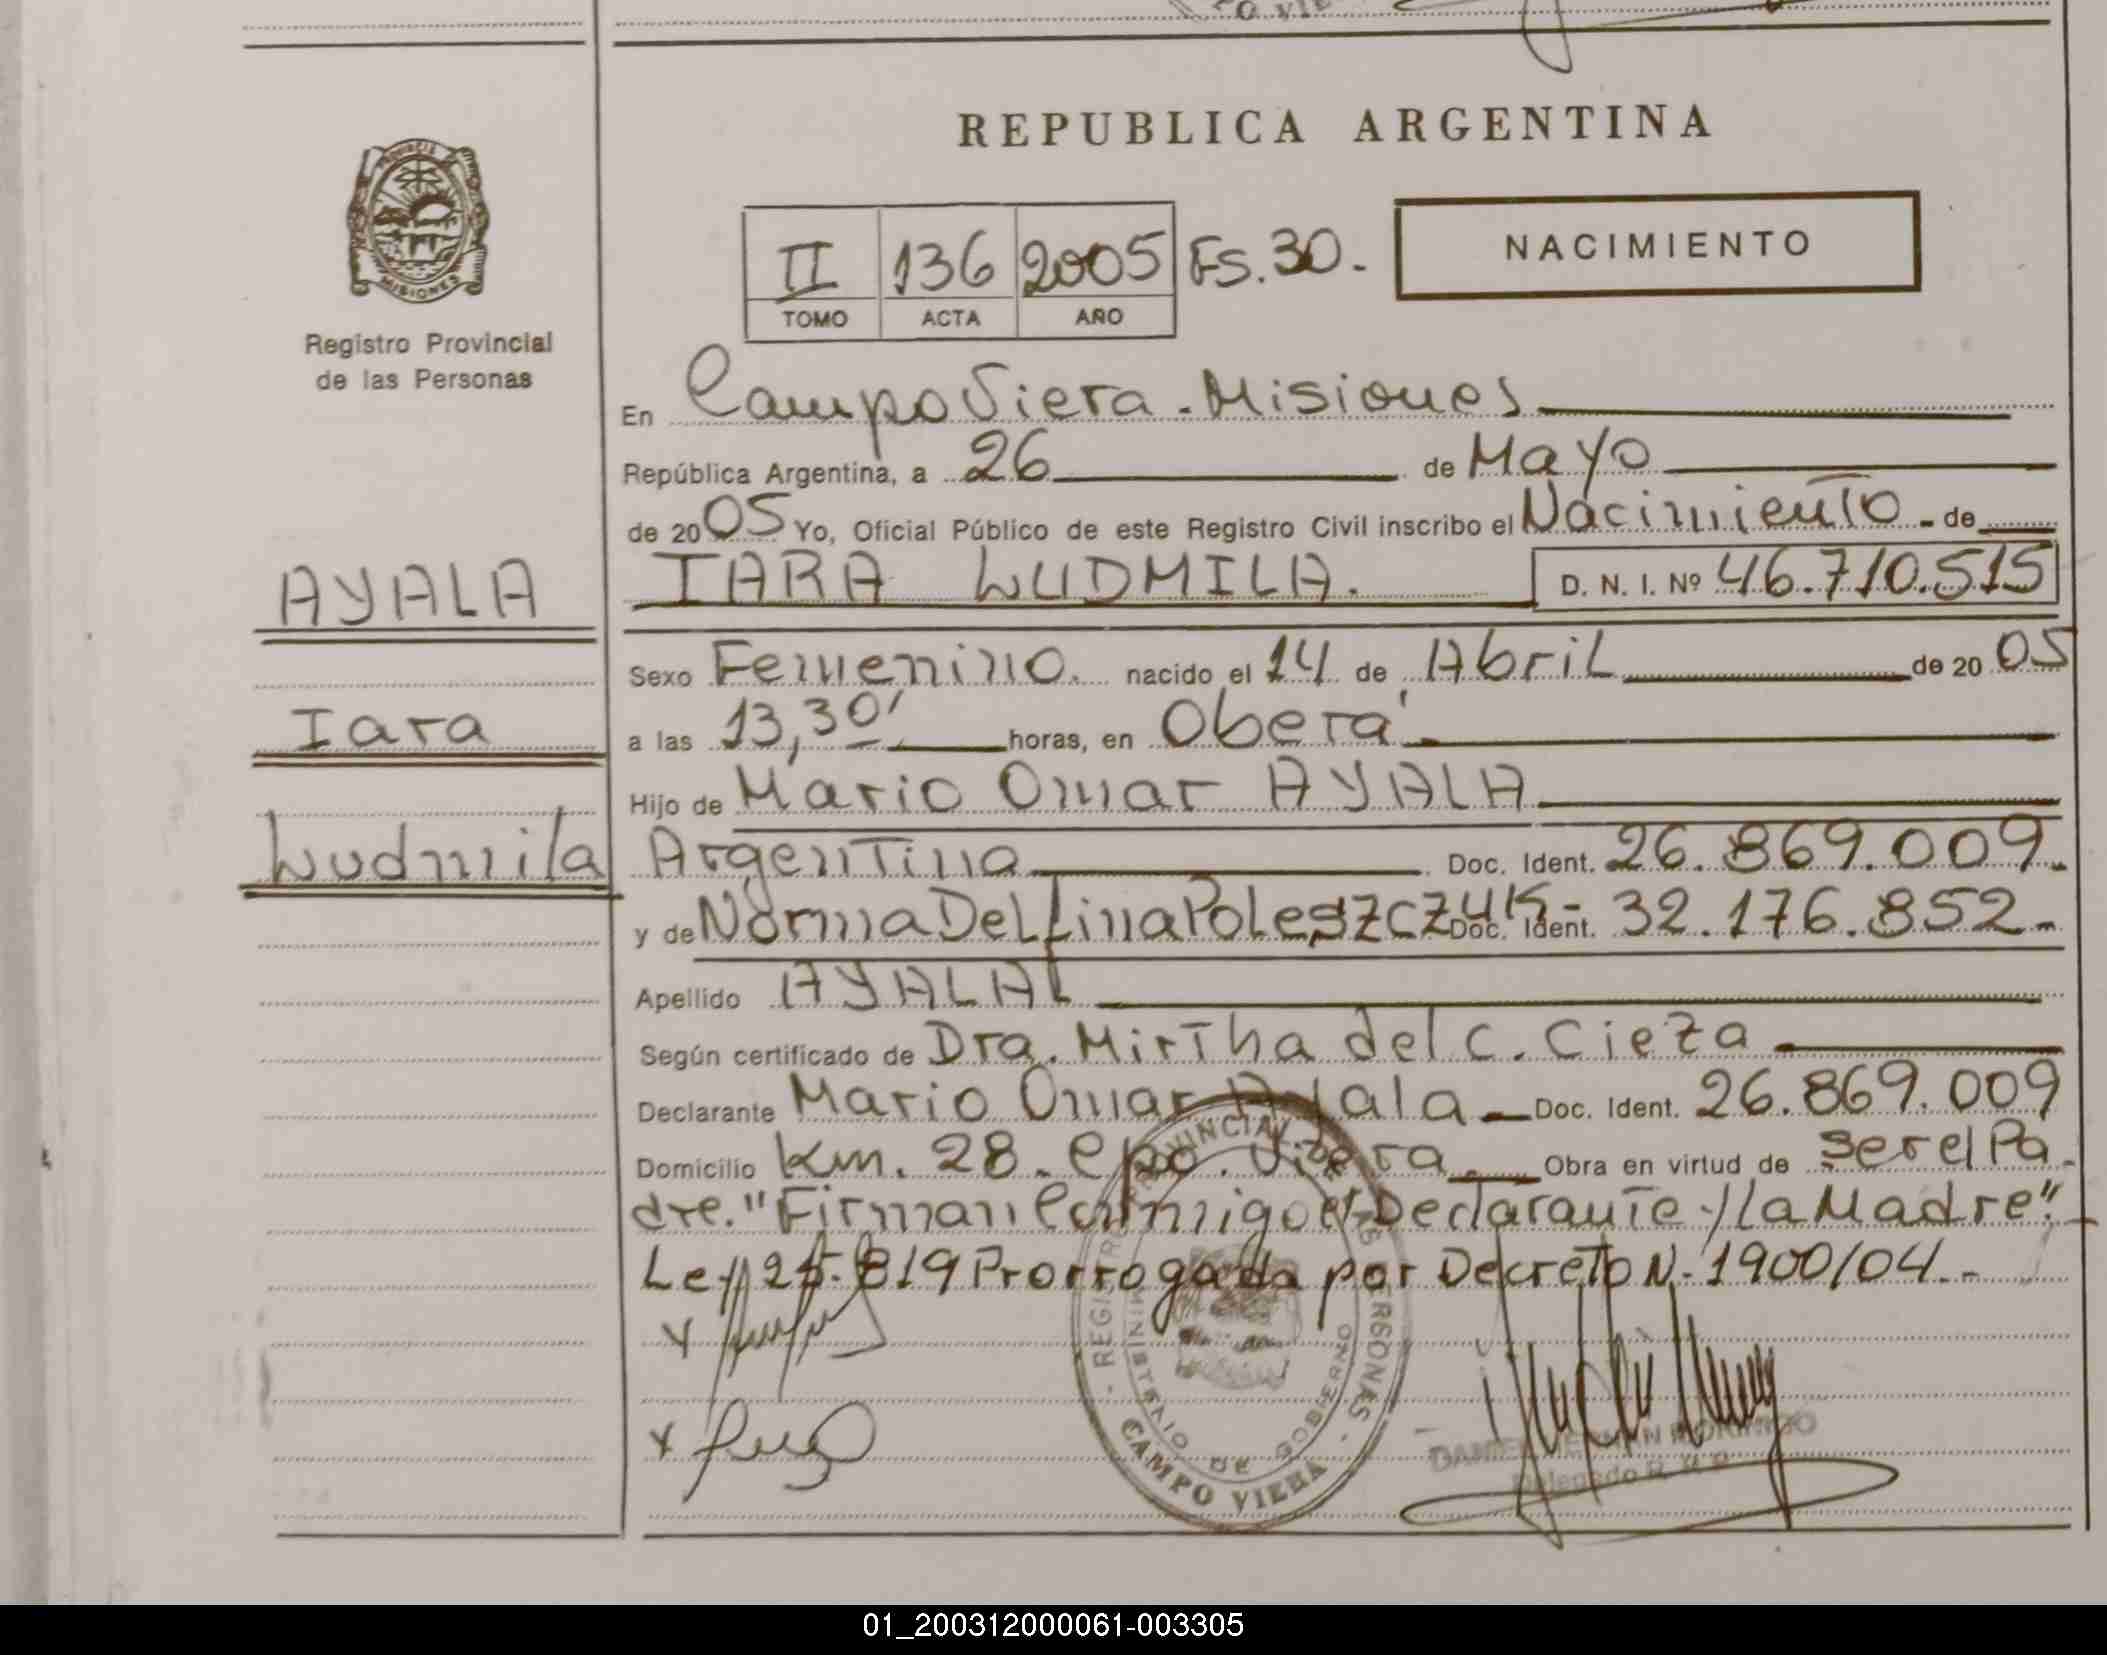 REPUBLICA ARGENTINA
PROVINCIA
MISIONES
Registro Provincial
de las Personas
II 136 2005 Fs. 30.-
TOMO ACTA AÑO
NACIMIENTO
En Campo Viera - Misiones
República Argentina, a 26 de Mayo
de 2005 Yo, Oficial Público de este Registro Civil inscribo el Nacimiento - de
IARA LUDMILA. D. N. I. Nº 46.710.515
AYALA
Iara
Ludmila
Sexo Femenino. nacido el 14 de Abril de 20 05
a las 13,30' horas, en Oberá
Hijo de Mario Omar AYALA
Argentina Doc. Ident. 26.869.009.-
y de Norma Delfina Poleszczuk- Doc. Ident. 32.176.852.-
Apellido AYALA
Según certificado de Dra. Mirtha del C. Cieza
Declarante Mario Omar Ayala Doc. Ident. 26.869.009
Domicilio Km. 28. Cpo. Viera. Obra en virtud de ser el Pa-
dre. "Firman Conmigo el Declarante y la Madre".
Ley 25.819 Prorrogada por Decreto N. 1900/04.-
REGISTRO PROVINCIAL DE LAS PERSONAS
MINISTERIO DE GOBIERNO
CAMPO VIERA
Delegado R. P. P.
01_200312000061-003305